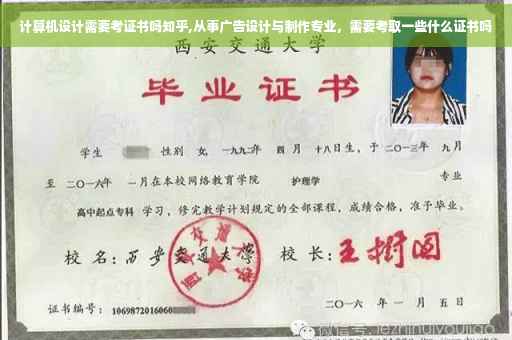 计算机设计需要考证书吗知乎,从事广告设计与制作专业，需要考取一些什么证书吗
西安交通大学
毕业证书
学生 性别 女，一九九二年 四月 十八日生，于二〇一三年 九月
至 二〇一六年 一月在本校网络教育学院 护理学 专业
高中起点专科 学习，修完教学计划规定的全部课程，成绩合格，准予毕业。
校名：西安交通大学 校长：王树国
西安交通大学
证书编号：1069872016060
二〇一六年 一月 五日
微信号: jiezhihuiyoujiao